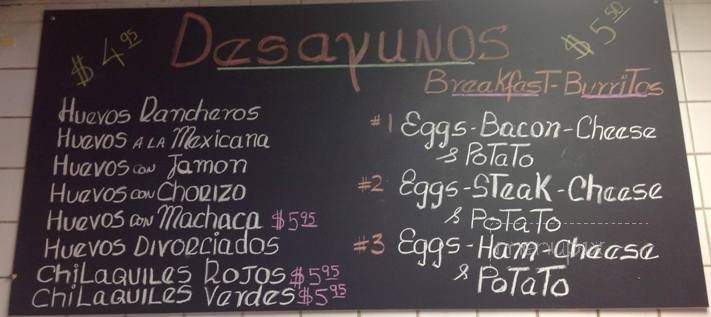 $4.95
Desayunos
$5.50
Huevos Rancheros
Huevos A LA Mexicana
Huevos con Jamon
Huevos con Chorizo
Huevos con Machaca $5.95
Huevos Divorciados
Chilaquiles Rojos $5.95
Chilaquiles Verdes $5.95
Breakfast-Burritos
#1 Eggs-Bacon-Cheese
& Potato
#2 Eggs-Steak-Cheese
& Potato
#3 Eggs-Ham-Cheese
& Potato